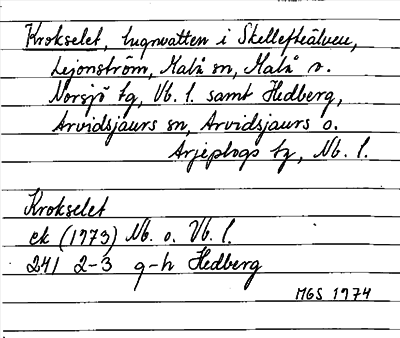 Krokselet, lugnvatten i Skellefteälven,
Lejonström, Malå sn, Malå o.
Norsjö tg, Vb. l. samt Hedberg,
Arvidsjaurs sn, Arvidsjaurs o.
Arjeplogs tg, Nb. l.
Krokselet
ek (1973) Nb. o. Vb. l.
241 2-3 g-h Hedberg
MGS 1974